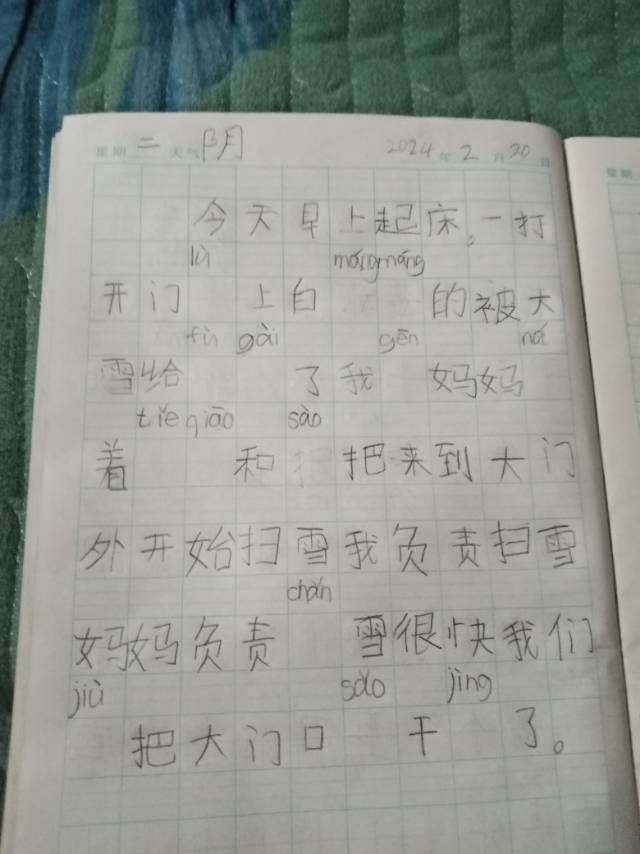 星期 二 天气 阴 2024年 2月 20日
今天早上起床,一打
lù mángmáng
开门 上白 的被大
fù gài gēn ná
雪给 了我 妈妈
tiě qiāo sào
着 和 把来到大门
外开始扫雪我负责扫雪
chǎn
妈妈负责 雪很快我们
jiù sǎo jìng
把大门口 干 了。
星期